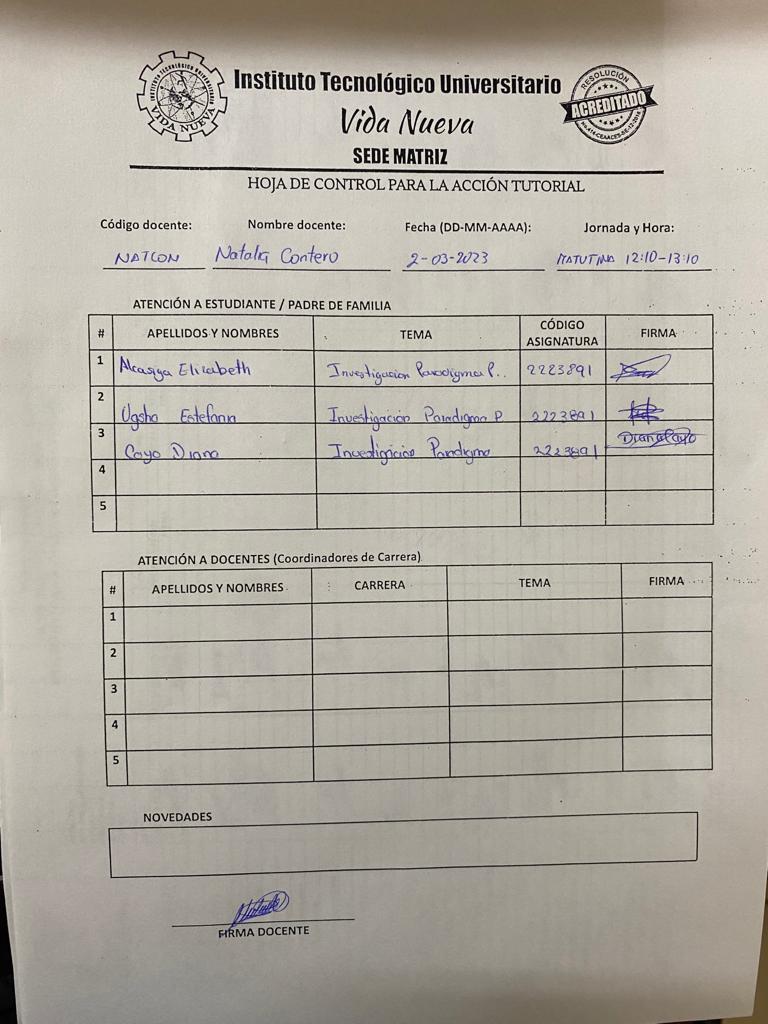 INSTITUTO TECNOLÓGICO UNIVERSITARIO
VIDA NUEVA
Instituto Tecnológico Universitario
Vida Nueva
SEDE MATRIZ
RESOLUCIÓN
ACREDITADO
HOJA DE CONTROL PARA LA ACCIÓN TUTORIAL
Código docente: Nombre docente: Fecha (DD-MM-AAAA): Jornada y Hora:
NATCON Natalia Contero 2-03-2023 MATUTINA 12:10-13:10
ATENCIÓN A ESTUDIANTE / PADRE DE FAMILIA
# APELLIDOS Y NOMBRES TEMA CÓDIGO ASIGNATURA FIRMA
1 Elizabeth Investigacion Paradigma P.. 2223891
2 Ugsha Estefania Investigación Paradigma P 2223891
3 Cayo Diana Investigación Paradigma 2223891 Diana Cayo
4
5
ATENCIÓN A DOCENTES (Coordinadores de Carrera)
# APELLIDOS Y NOMBRES CARRERA TEMA FIRMA
1
2
3
4
5
NOVEDADES
FIRMA DOCENTE